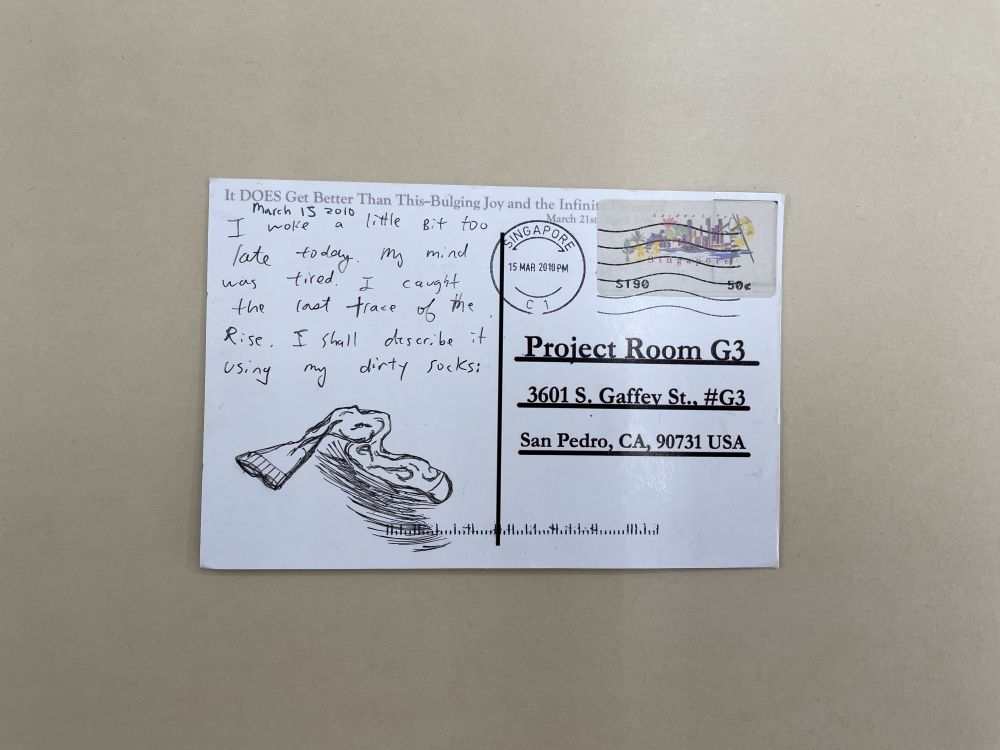 It DOES Get Better Than This-Bulging Joy and the Infinit
March 21st
March 15 2010
I woke a little Bit too
late today. My mind
was tired. I caught
the last trace of the
Rise. I shall describe it
using my dirty socks:
SINGAPORE
15 MAR 2010 PM
C 1
Singapore
ST90 50¢
Project Room G3
3601 S. Gaffey St., #G3
San Pedro, CA, 90731 USA